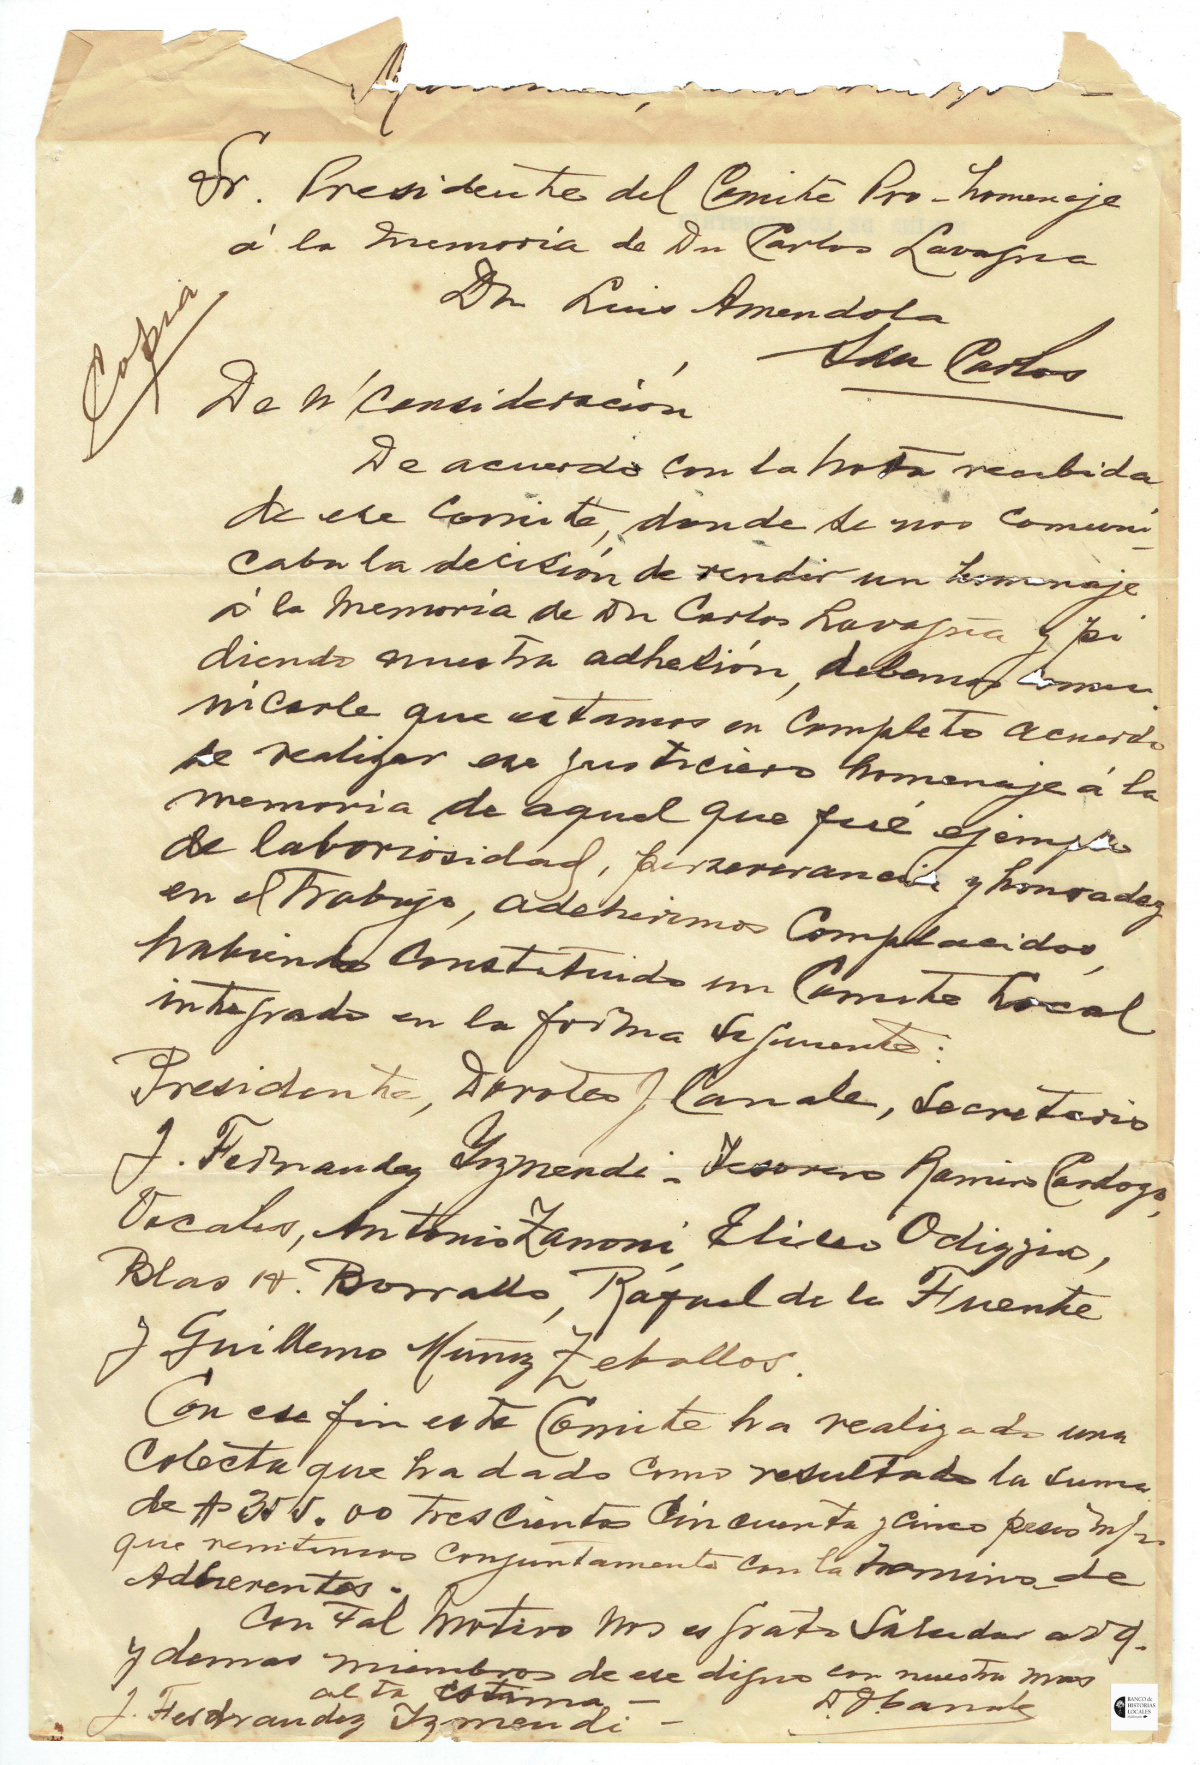 Sr. Presidente del Comité Pro-homenaje
á la memoria de Dn Carlos Lavagna
Dn Luis Amendola
San Carlos
Copia
De n/ consideración
De acuerdo con la nota recibida
de ese Comite, donde se nos comuni
caba la decisión de rendir un homenaje
á la memoria de Dn Carlos Lavagna y pi
diendo nuestra adhesión, debemos comu
nicarle que estamos en completo acuerdo
se realizar ese justiciero homenaje á la
memoria de aquel que fué ejemplo
de laboriosidad, perseverancia y honradez
en el trabajo, adherimos complacidos,
habiendo constituido un Comite Local
integrado en la forma siguiente:
Presidente, Doroteo J Canale, Secretario
J. Fernandez Yzmendi - Tesorero Ramiro Cardozo,
Vocales, Antonio Zanoni, Eliseo Odizzio,
Blas H. Borrallo, Raquel de la Fuente
y Guillermo Muñoz Zeballos.
Con ese fin este Comite ha realizado una
colecta que ha dado como resultado la suma
de $ 355.00 trescientos cincuenta y cinco pesos m/n
que remitimos conjuntamente con la nomina de
Adherentes.
Con tal motivo nos es grato saludar a Vd.
y demas miembros de ese digno con nuestra mas
alta estima -
J. Fernandez Yzmendi - D. J. Canale
BANCO de
HISTORIAS
LOCALES